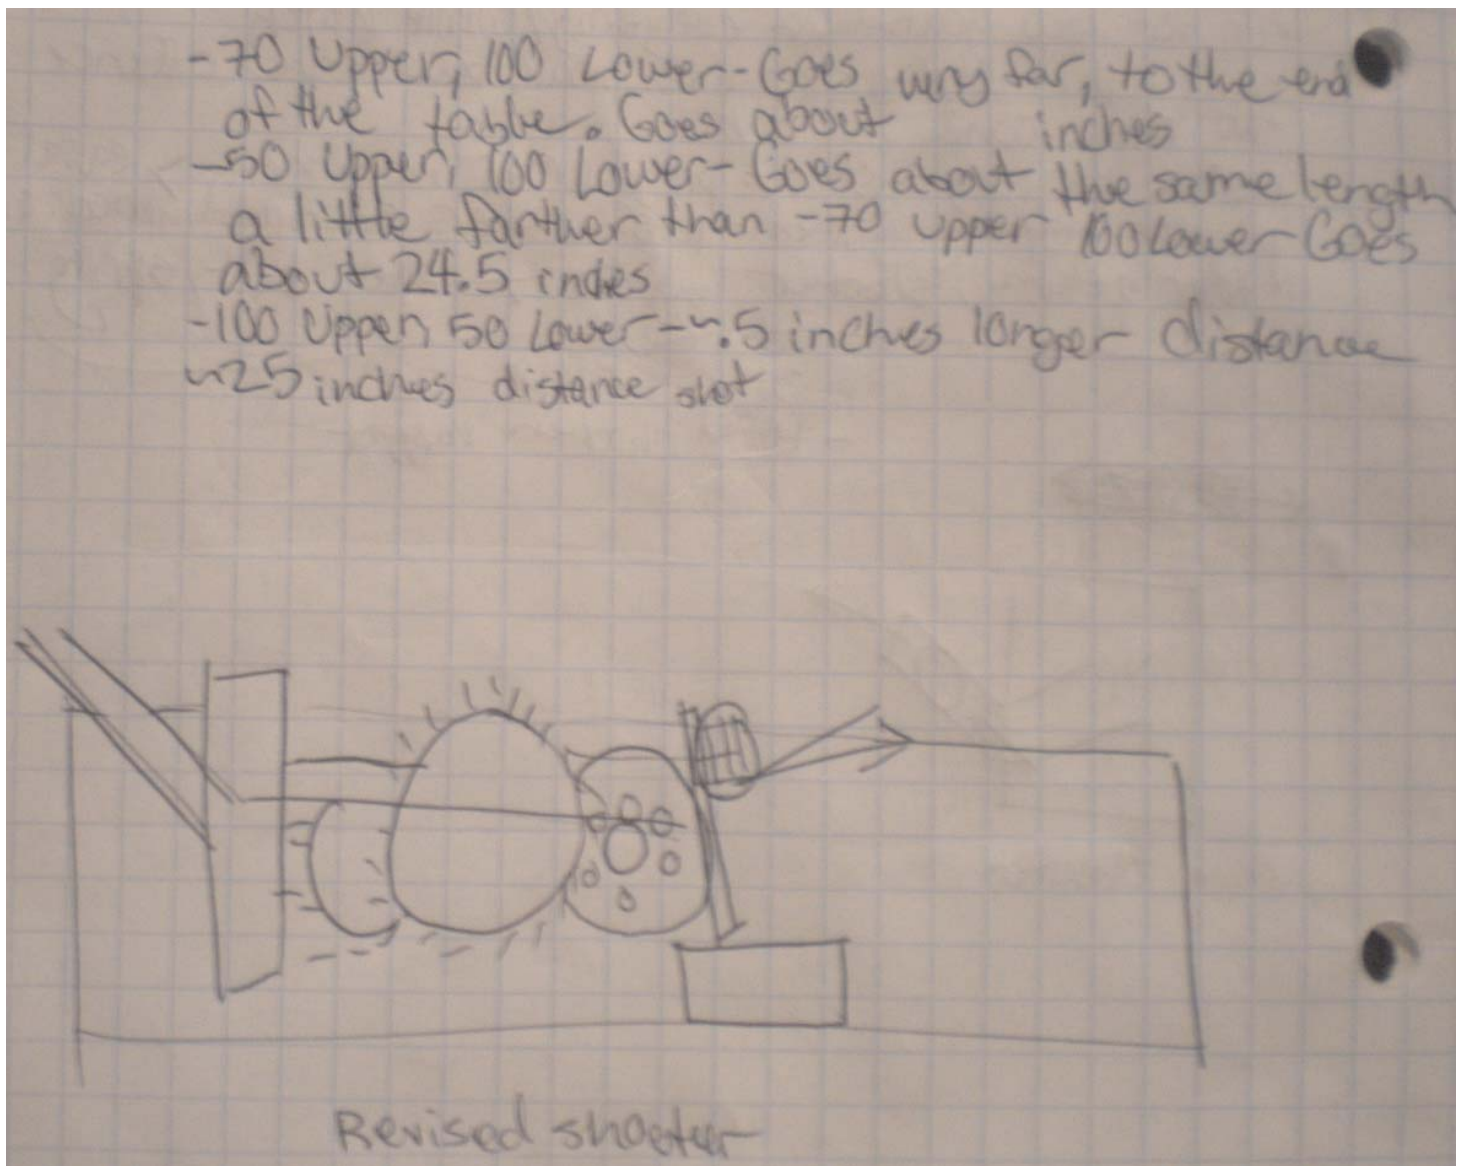 -70 Upper, 100 Lower-Goes very far, to the end
of the table. Goes about inches
-50 Upper, 100 Lower-Goes about the same length
a little farther than -70 upper 100 Lower Goes
about 24.5 inches
-100 Upper, 50 Lower-~.5 inches longer distance
~25 inches distance shot
Revised shooter